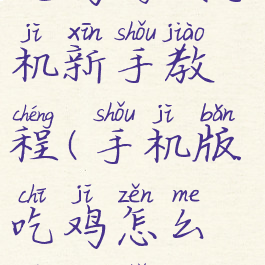 jī xīn shǒu jiào
机新手教
chéng shǒu jī bǎn
程(手机版
chī jī zěn me
吃鸡怎么